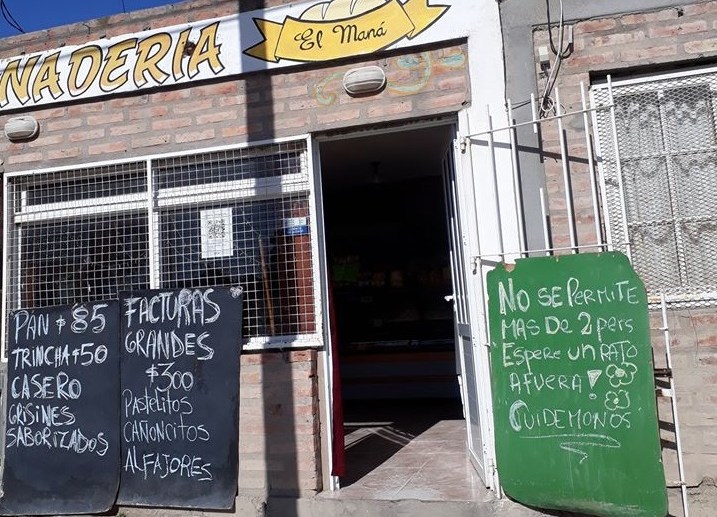 NADERIA
El Maná
PAN $85
TRINCHA $50
CASERO
GRISINES
SABORIZADOS
FACTURAS
GRANDES
$300
PASTELITOS
CAÑONCITOS
ALFAJORES
NO SE PERMITE
MAS DE 2 PERS
ESPERE UN RATO
AFUERA!
CUIDEMONOS